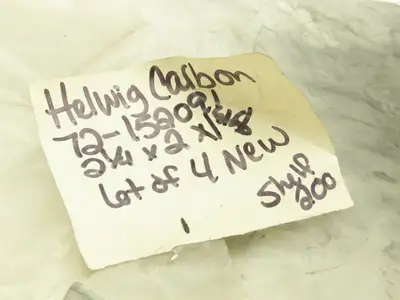 Helwig Carbon
72-152091
2 1/4 x 2 x 1 5/8
Lot of 4 New
Shelf
200